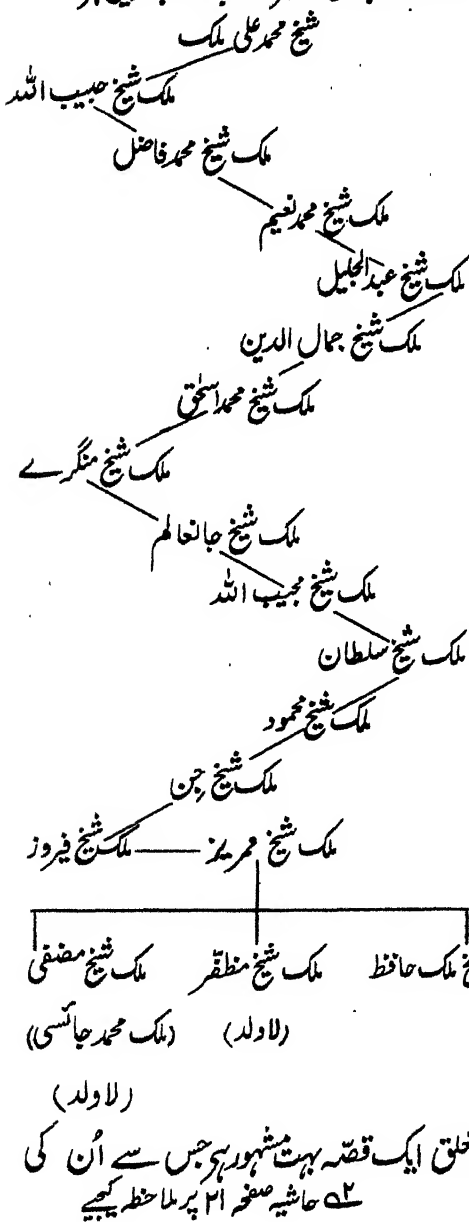 شیخ محمد علی ملک
ملک شیخ حبیب اللہ
ملک شیخ محمد فاضل
ملک شیخ محمد نعیم
ملک شیخ عبدالجلیل
ملک شیخ جمال الدین
ملک شیخ محمد اسحٰق
ملک شیخ منگرے
ملک شیخ جانعالم
ملک شیخ مجیب اللہ
ملک شیخ سلطان
ملک شیخ محمود
ملک شیخ چن
ملک شیخ ممریز ملک شیخ فیروز
ملک حافظ ملک شیخ مظفر ملک شیخ مصنفی
(لا ولد) (ملک محمد جائسی)
(لا ولد)
ایک قصّہ بہت مشہور ہے جس سے اُن کی
۲ حاشیہ صفحہ ۲۱ پر ملاحظہ کیجیے